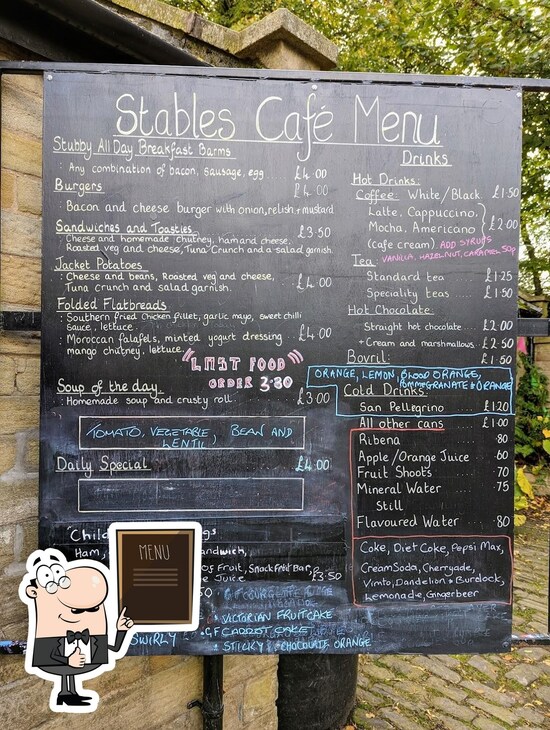 Stables Café Menu
Stubby All Day Breakfast Barms
: Any combination of bacon, sausage, egg £4.00
Burgers £4.00
: Bacon and cheese burger with onion, relish + mustard
Sandwiches and Toasties £3.50
: Cheese and homemade chutney, ham and cheese,
Roasted veg and cheese, Tuna Crunch and salad garnish.
Jacket Potatoes
: Cheese and beans, Roasted veg and cheese,
Tuna crunch and salad garnish. £4.00
Folded Flatbreads
: Southern fried Chicken fillet, garlic mayo, sweet chilli
sauce, lettuce
: Moroccan falafels, minted yogurt dressing £4.00
mango chutney, lettuce
"LAST FOOD"
ORDER 3.30
Soup of the day
: Homemade soup and crusty roll £3.00
TOMATO, VEGETABLE, BEAN AND
LENTIL
Daily Special £4.00
Ham, andwich,
of Fruit, Snack Fruit Bar,
e Juice. £3.50
VICTORIAN FRUIT CAKE
GF CARROT CAKE
SWIRLY STICKY CHOCOLATE ORANGE
Drinks
Hot Drinks:
Coffee: White/Black £1.50
Latte, Cappuccino,
Mocha, Americano £2.00
(cafe cream) ADD SYRUPS
VANILLA, HAZELNUT, CARAMEL 50p
Tea:
Standard tea £1.25
Speciality teas £1.50
Hot Chocolate:
Straight hot chocolate £2.00
+ Cream and marshmallows £2.50
Bovril: £1.50
ORANGE, LEMON, BLOOD ORANGE,
POMMEGRANATE + ORANGE
Cold Drinks:
San Pellegrino £1.20
All other cans £1.00
Ribena .80
Apple/Orange Juice .60
Fruit Shoots .70
Mineral Water .75
Still
Flavoured Water .80
Coke, Diet Coke, Pepsi Max,
Cream Soda, Cherryade,
Vimto, Dandelion + Burdock,
Lemonade, Gingerbeer
MENU